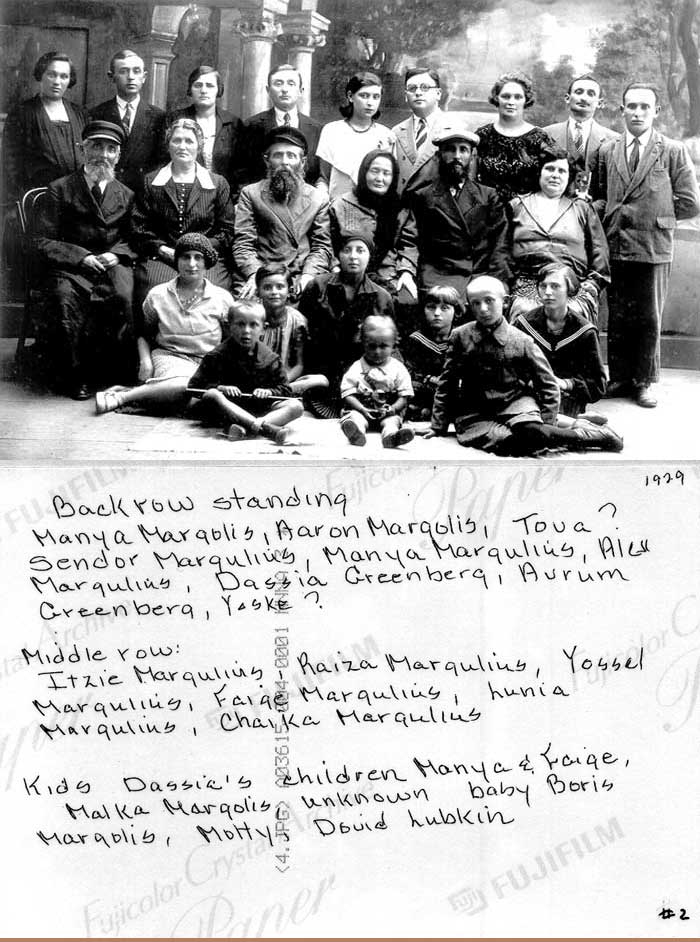 1929
Back row standing
Manya Margolis, Aaron Margolis, Tova?
Sendor Margulius, Manya Margulius, Alex
Margulius, Dassia Greenberg, Avrum
Greenberg, Yoske?
Middle row:
Itzie Margulius, Raiza Margulius, Yossel
Margulius, Faige Margulius, Lunia
Margulius, Chaika Margulius
Kids Dassia's children Manya & Faige,
Malka Margolis, unknown baby Boris
Margolis, Motty, David Lubkin
#2
FUJIFILM
Fujicolor Crystal Archive
Paper
FUJIFILM